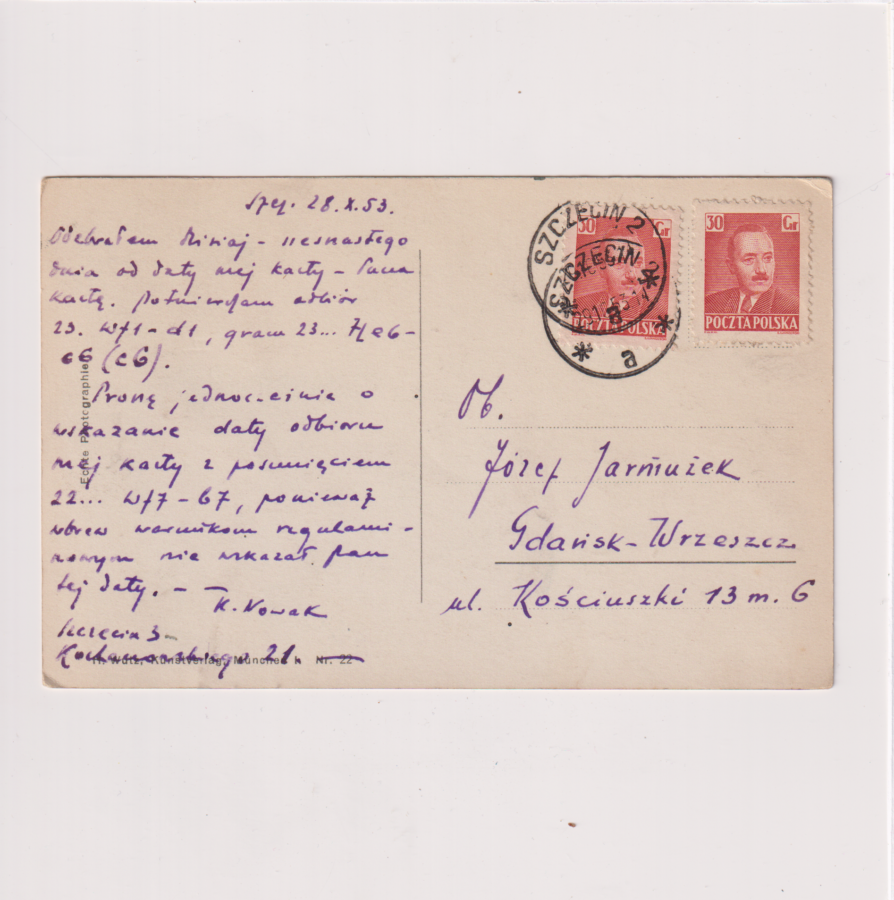 28.X.53.
Odebrałem dzisiaj – szesnastego
dnia od daty mej karty – Pana
kartę. Potwierdzam odbiór
23. Wf1-d1, gram 23... He6-
c6 (c6).
Proszę jednocześnie o
wskazanie daty odbioru
mej karty z posunięciem
22... Wf7-b7, ponieważ
wbrew warunkom regulami-
nowym nie wskazał Pan
tej daty. –
K. Nowak
Szczecin 3
Kochanowskiego 21
Echte Photographie
Kunstverlag, München Nr. 22
SZCZECIN 2
a
SZCZECIN 2
a
30 Gr
POCZTA POLSKA
30 Gr
POCZTA POLSKA
Ob.
Józef Jarmużek
Gdańsk-Wrzeszcz
ul. Kościuszki 13 m. 6